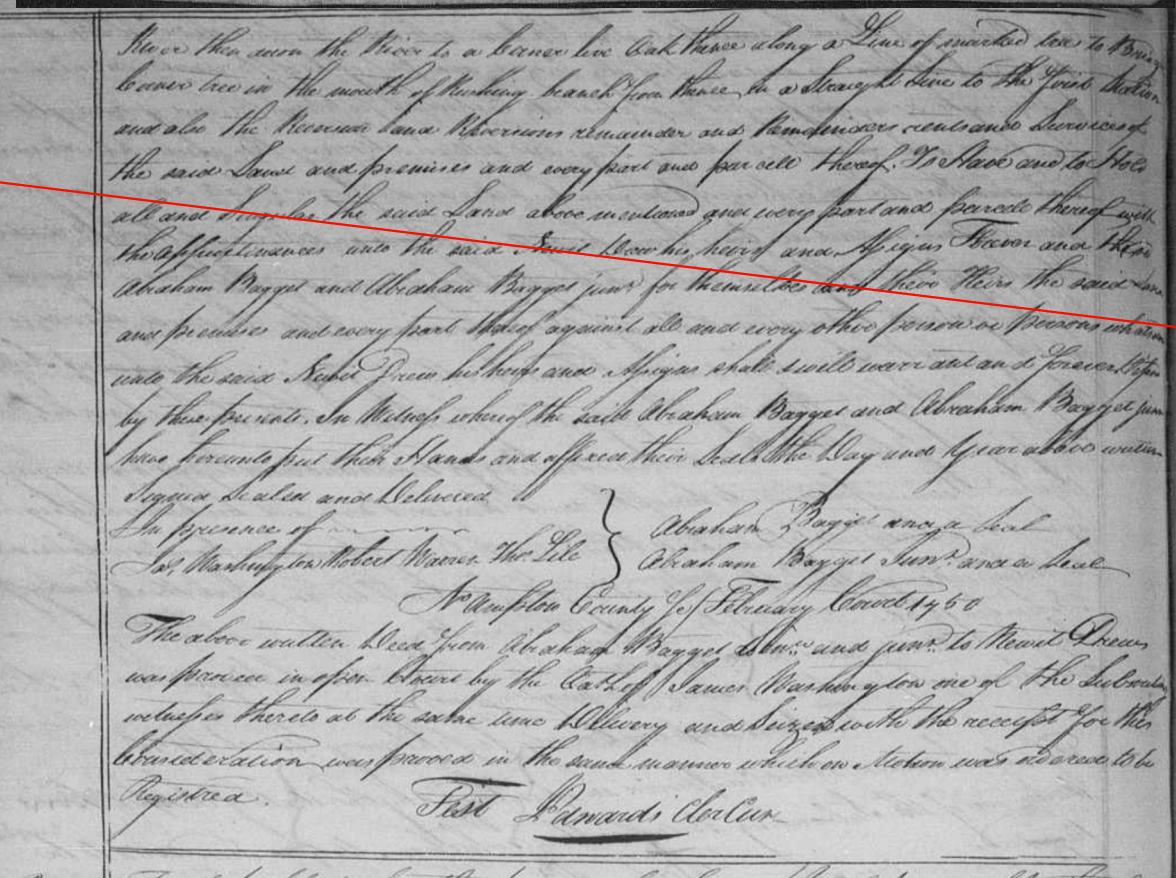 River then down the River to a Corner live Oak thence along a Line of marked trees to
Corner tree in the mouth of Rushing branch from thence in a Straight Line to the first Station
and also the Reversion and Reversions remainder and Remainders rents and Services of
the said Land and premises and every part and parcell thereof. To Have and to Hold
all and Singular the said Land above mentioned and every part and parcele thereof with
the appurtinances unto the said Newit Drew his heirs and Assigns Forever and the
Abraham Bagget and Abraham Bagget junr for themselves and their Heirs the said
and premises and every part thereof against all and every other person or persons
unto the said Newit Drew his heirs and Assigns shall & will warrant and forever
by these presents. In Witness whereof the said Abraham Bagget and Abraham Bagget jun
have hereunto put their Hands and affixed their Seals the Day and Year above written
Signed Sealed and Delivered
In presence of
Jas. Washington Robert Warren Thos.
Abraham Bagget and a Seal
Abraham Bagget Junr. and a Seal
No. Hampton County Ss February Court 1750
The above written Deed from Abraham Bagget Senr. and junr. to Newit Drew
was proved in open Court by the Oath of James Washington one of the
witnesses thereto at the same time Delivery and Seizen with the receipt for the
Consideration was proved in the same manner which on Motion was ordered to be
Registred.
Test Edwards Cler Cur